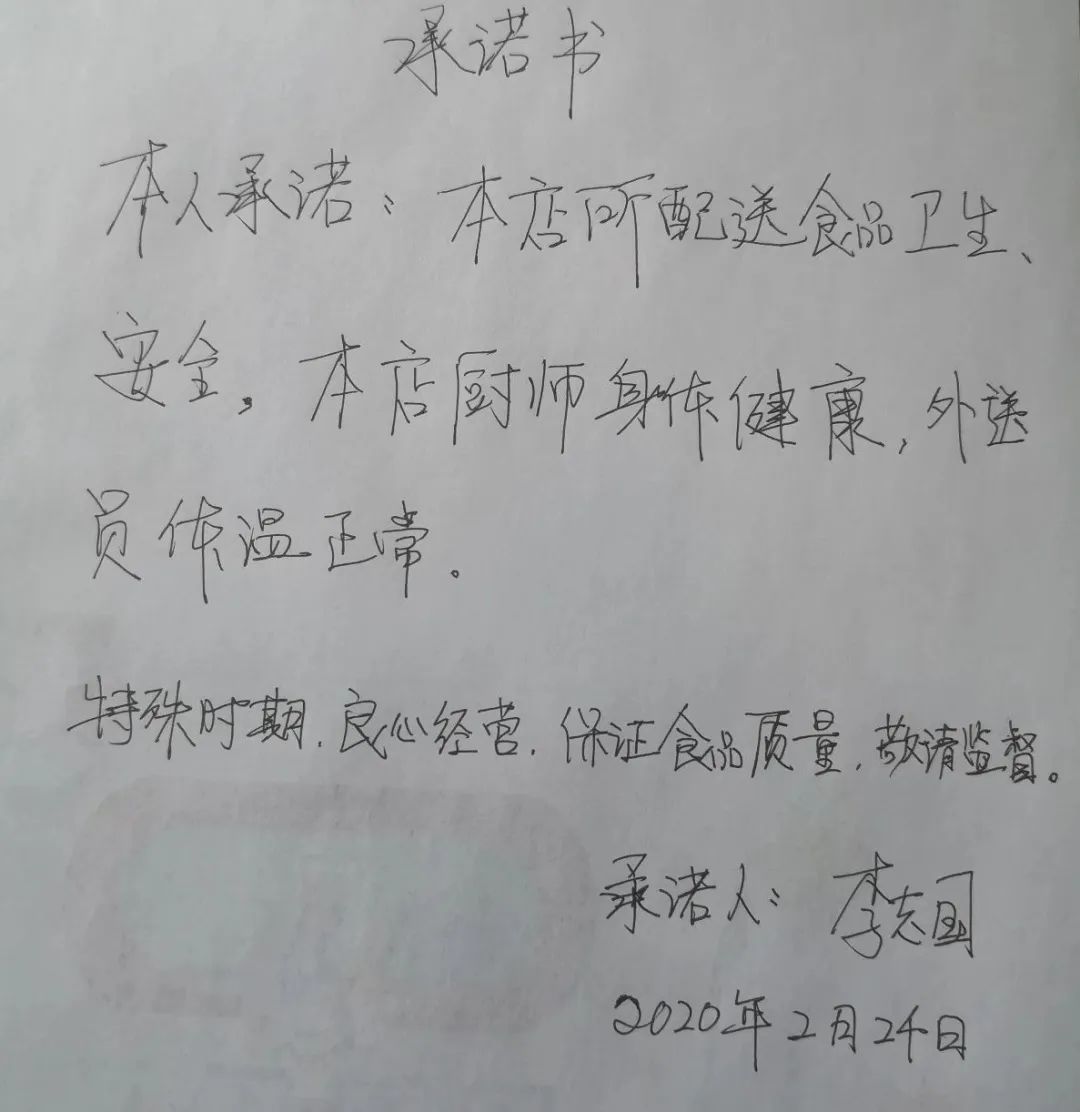 承诺书
本人承诺：本店所配送食品卫生、
安全。本店厨师身体健康，外送
员体温正常。
特殊时期，良心经营，保证食品质量，敬请监督。
承诺人：李志国
2020年2月24日